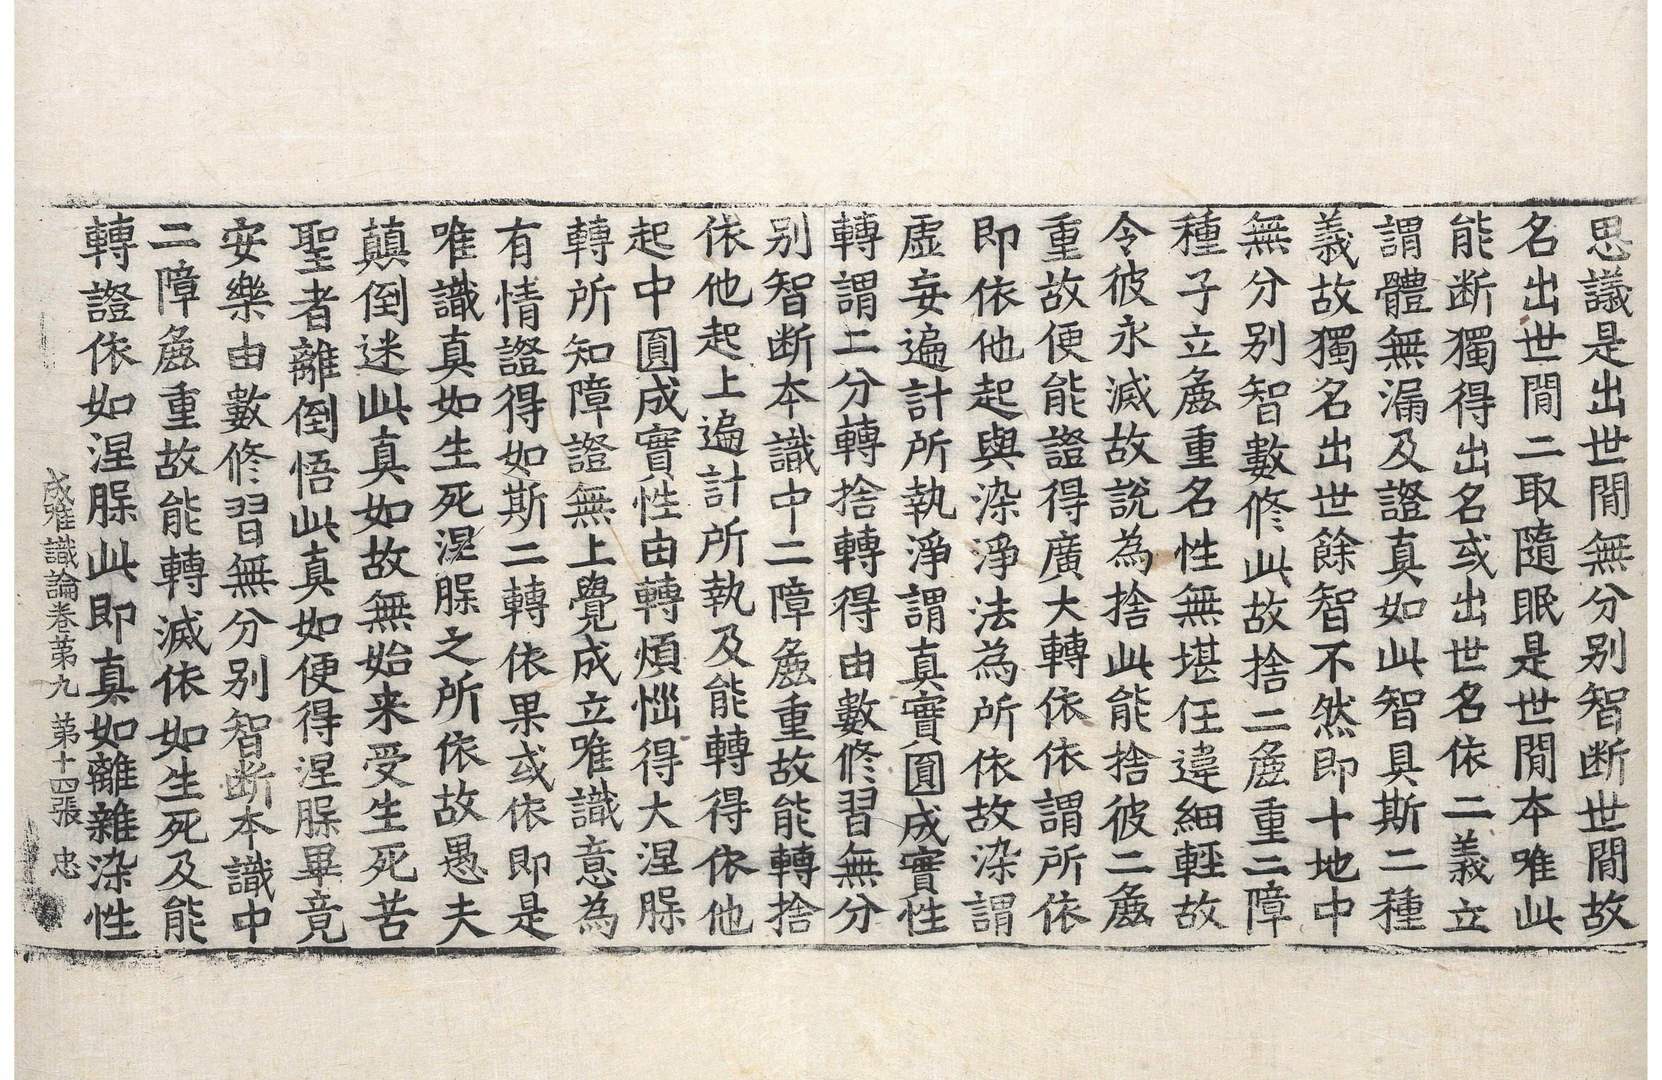 思議是出世閒無分別智断世閒故
名出世閒二取隨眠是世閒本唯此
能断獨得出名或出世名依二義立
謂體無漏及證真如此智具斯二種
義故獨名出世餘智不然即十地中
無分別智數修此故捨二麁重二障
種子立麁重名性無堪任違細輕故
令彼永滅故說為捨此能捨彼二麁
重故便能證得廣大轉依依謂所依
即依他起與染淨法為所依故染謂
虛妄遍計所執淨謂真實圓成實性
轉謂二分轉捨轉得由數修習無分
別智断本識中二障麁重故能轉捨
依他起上遍計所執及能轉得依他
起中圓成實性由轉煩惱得大涅槃
轉所知障證無上覺成立唯識意為
有情證得如斯二轉依果或依即是
唯識真如生死涅槃之所依故愚夫
顛倒迷此真如故無始来受生死苦
聖者離倒悟此真如便得涅槃畢竟
安樂由數修習無分別智断本識中
二障麁重故能轉滅依如生死及能
轉證依如涅槃此即真如離雜染性
成唯識論卷第九 第十四張 忠